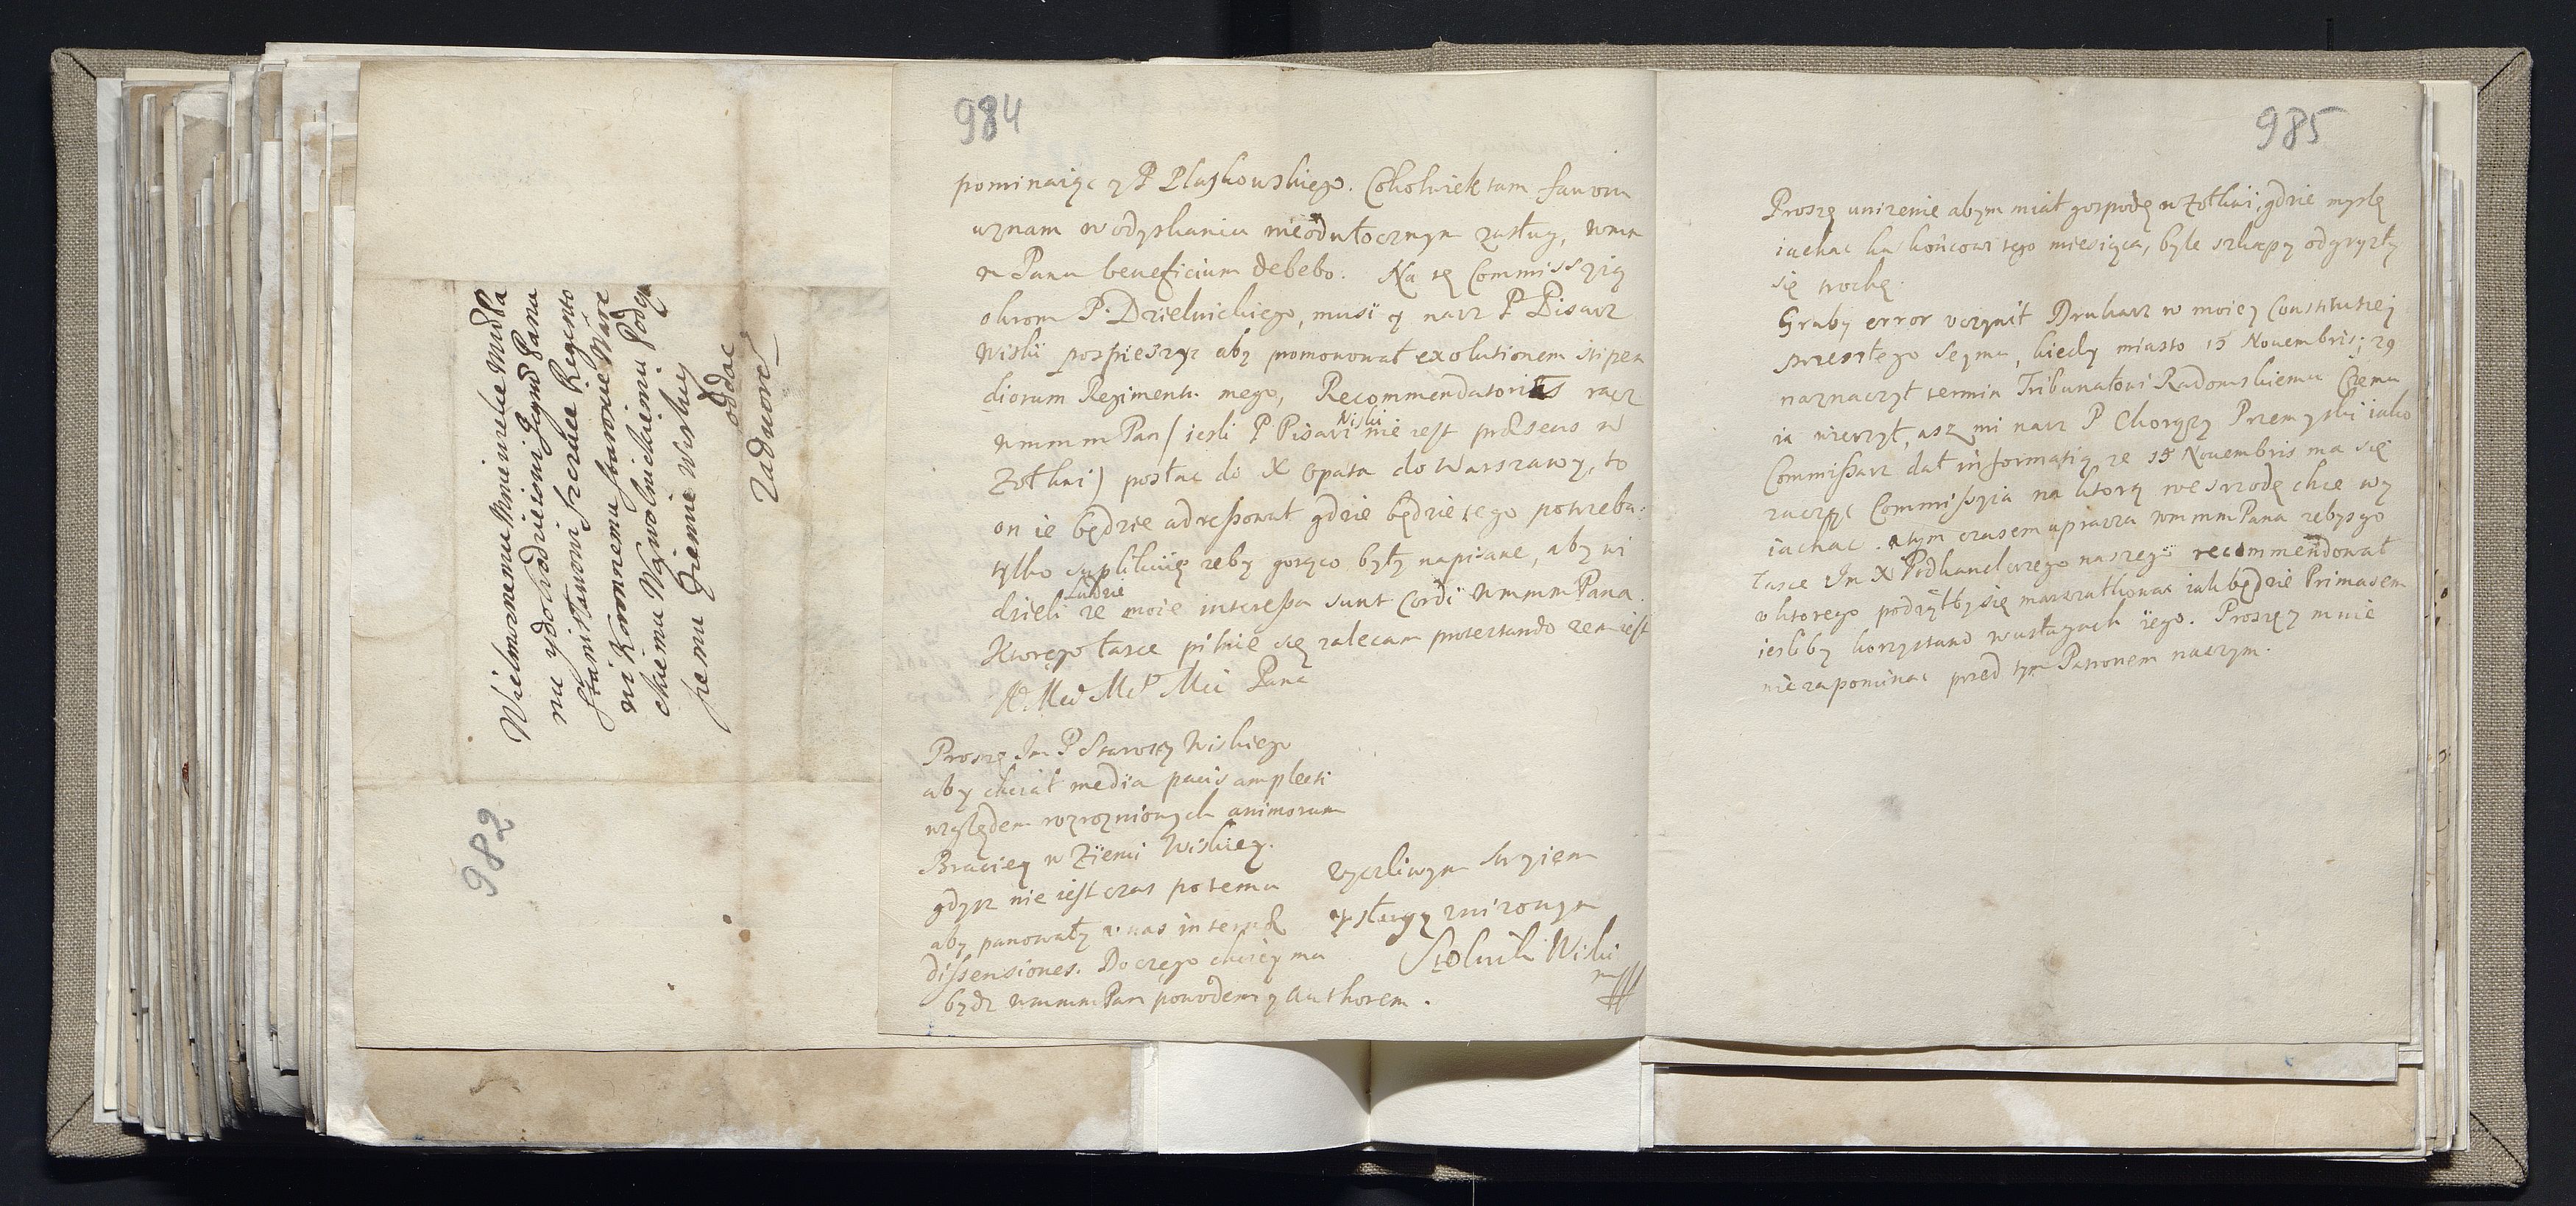 982
Wielmoznemu Mnie wielce Mśćiw
mu y dobrodzieiowi Jegmśći Panu
Stanisławowi Szczuce Regento
wi Koronnemu Staroscie
ckiemu Wąwolnickiemu Podcza
szemu Ziemie Wiskiey
oddac
Zadworze
984
pominaiąc y P. Plaskowskiego. Cokolwiek tam favoru
uznam w odyskaniu nieodwłocznym zasług, wmm
m Panu beneficium debebo. Na tę Commissyią
okrom P. Dzielnickiego, musi y nasz P. Pisarz
Wiski pospieszyc aby promowował exolutionem stipen
diorum Regimentu mego, Recommendatorias racz
wmmm Pan / iesli P Pisarz Wiski nie iest præsens w
Zołkwi) posłac do X Opata do Warszawy, to
on ie będzie adressował gdzie będzie tego potrzeba:
tylko suplikuię zeby gorąco były napisane, aby wi
dzieli ludzie ze moie interessa sunt Cordi wmmmPana.
Ktorego łasce pilnie się zalecam protestando zem iest
W. Mci Mci Mei Pana
Proszę Im P Starosty Wiskiego
aby chciał media pacis amplecti
względem rozroznionych animorum
Braciey w Ziemi Wiskiey.
gdysz nie iest czas po temu
aby panowały u nas internæ
dissensiones. Do czego chciey mu
bydz wmmm Pan powodem y authorem.
zyczliwym stryiem
y sługą unizonym
Stolnik Wiski
mpp
985
Proszę unizenie abym miał gospodę w Zołkwi, gdzie myslę
iachac ku koncowi tego miesiąca, byle szkapy odgryzły
się trochę.
Gruby error uczynił Drukarz w moiey Constitutiey
przeszłego Seymu, kiedy miasto 15 Novembris; 29
naznaczył termin Tribunałowi Radomskiemu Czemu
ia wierzył, asz mi nasz P Chorązy Przemyski iako
Commissarz dał informatią, ze 15 Novembris ma się
zacząc Commissyia na ktorą we srzodę chce wy
iachac. A tym czasem uprasza wmmmPana zebys go
łasce Im X Podkanclerzego naszego recommendował
u ktorego podiąłby się marszałkowac iak będzie Primasem
iesliby korzystano w usługach iego. Proszę y mnie
nie zapominac przed tym Patronem naszym.